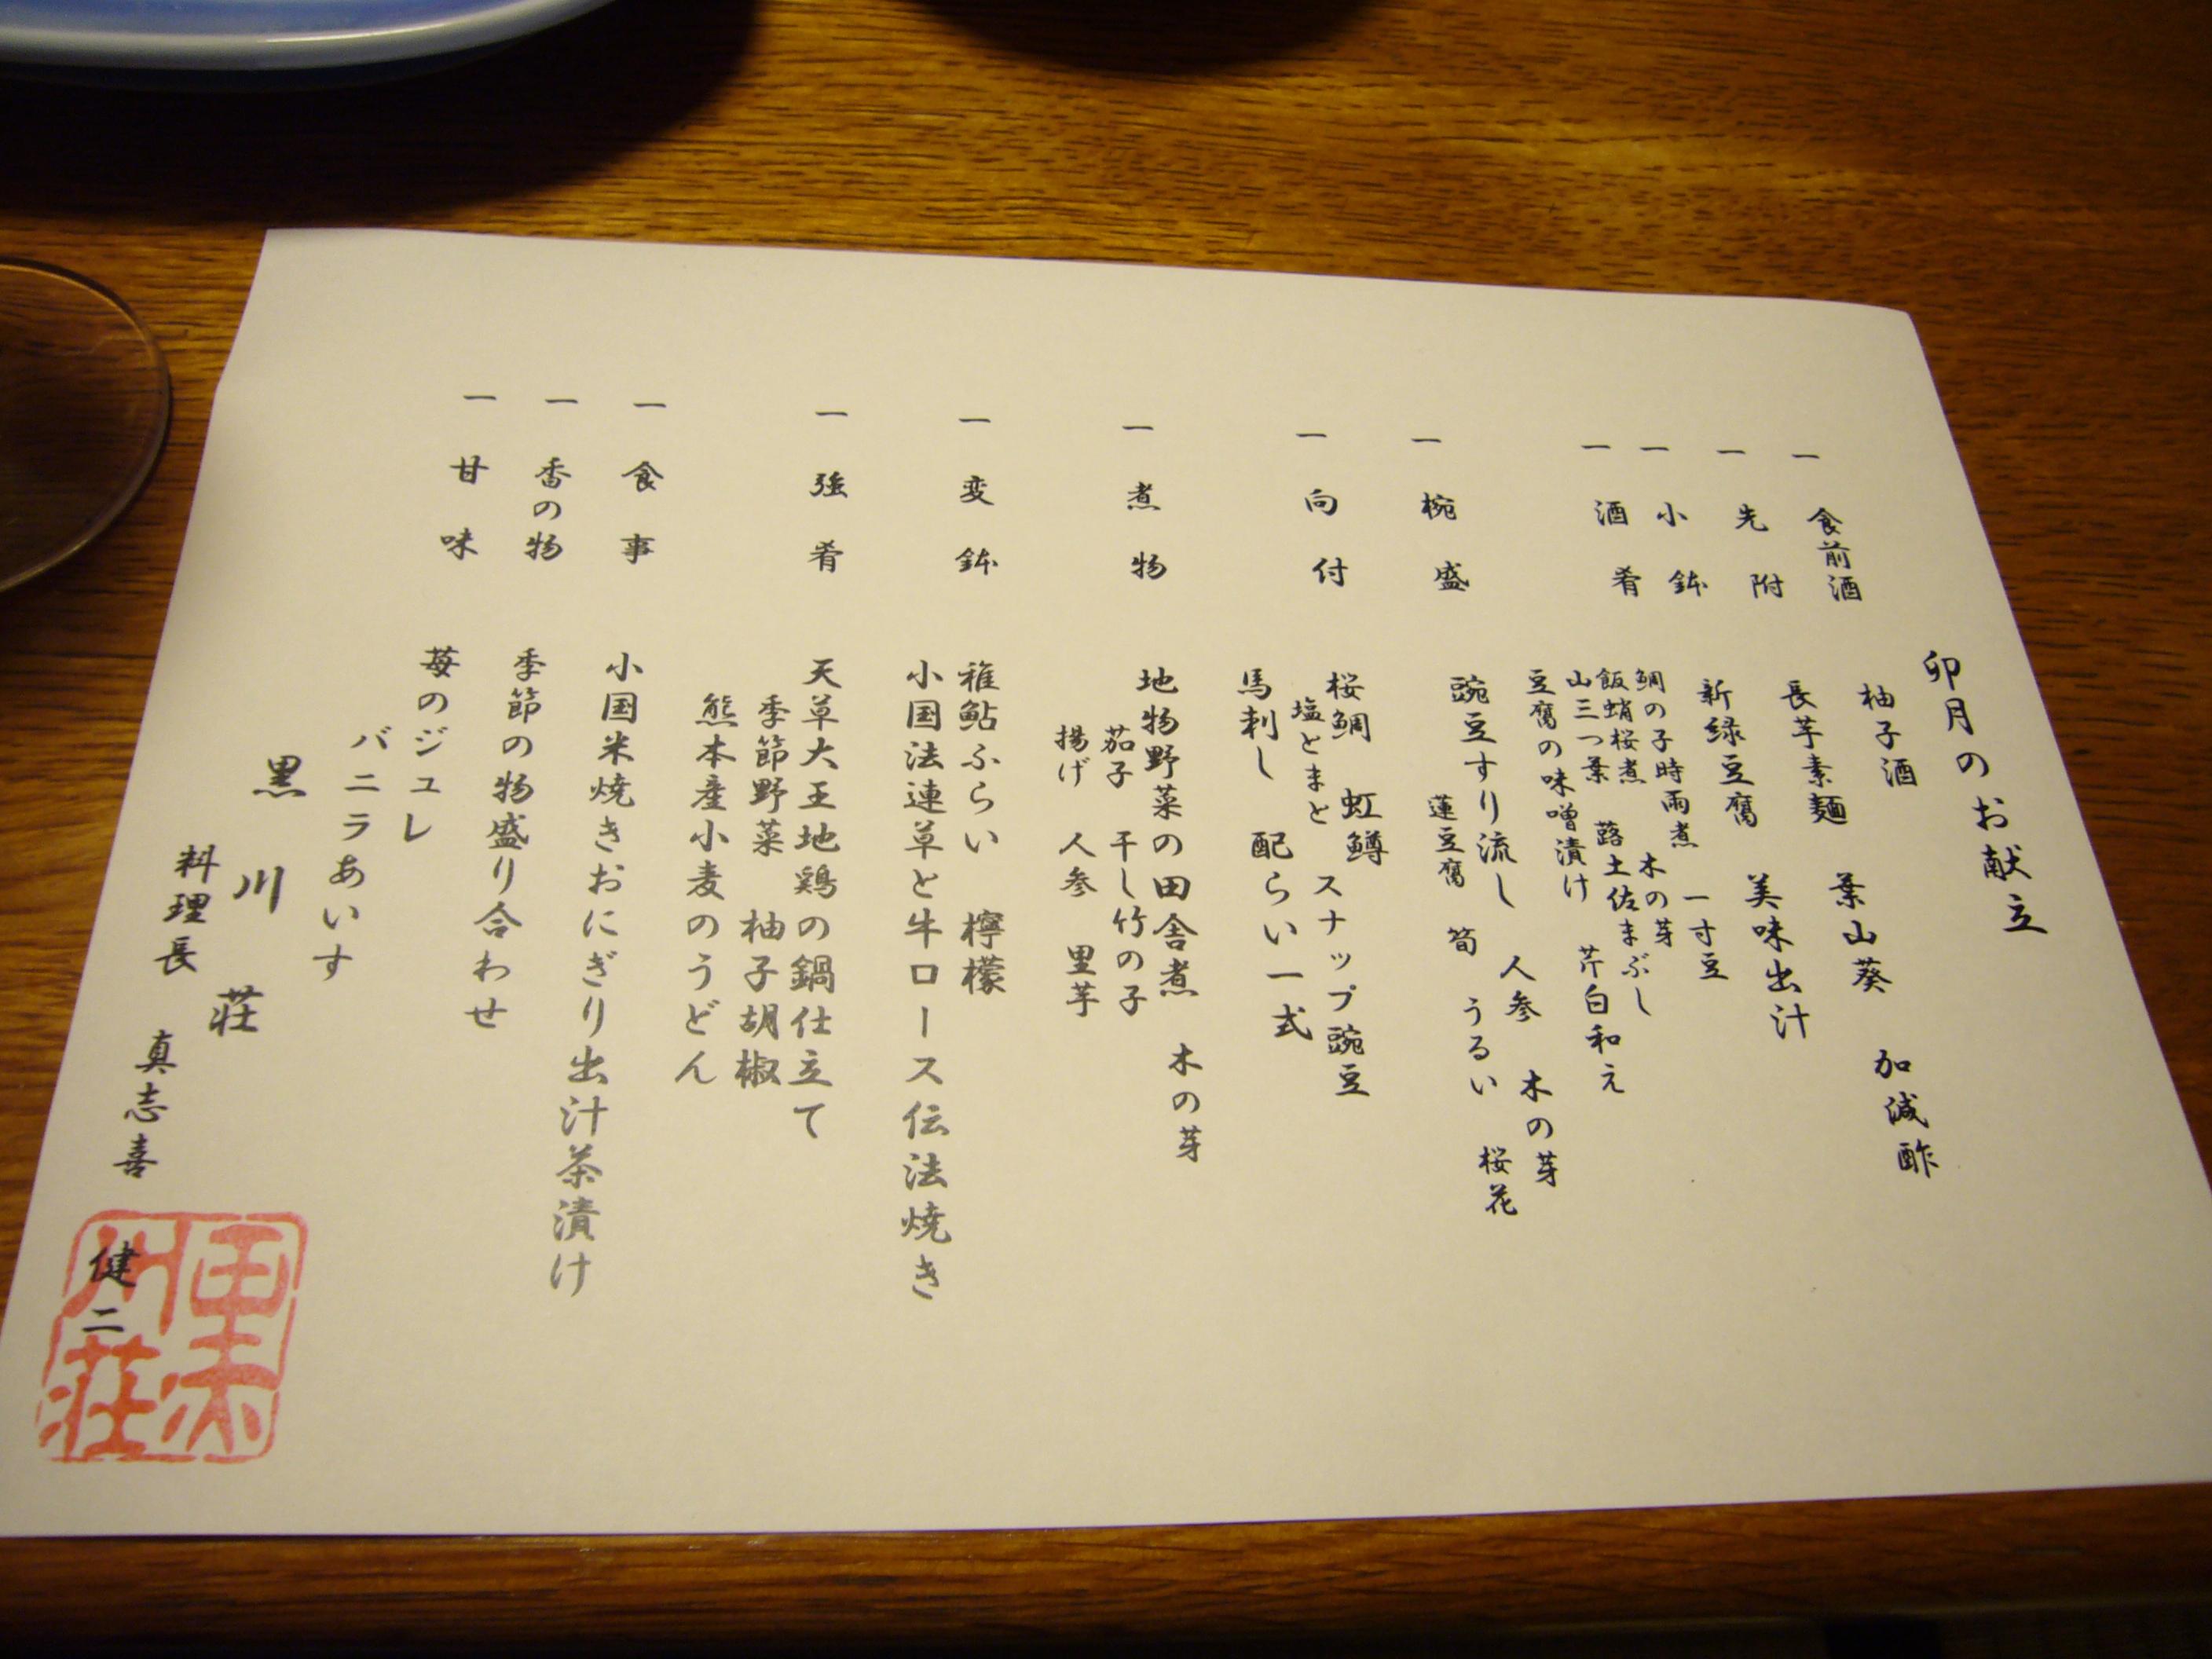 卯月のお献立
一 食前酒 柚子酒
一 先附 長芋素麺 葉山葵 加減酢
一 小鉢 新緑豆腐 美味出汁
一 酒肴 鯛の子時雨煮 木の芽 一寸豆
飯蛸桜煮 蕗土佐まぶし
山三つ葉 芹白和え
豆腐の味噌漬け
一 椀盛 豌豆すり流し 人参 木の芽
蓮豆腐 筍 うるい 桜花
一 向付 桜鯛 虹鱒 スナップ豌豆
塩とまと
馬刺し 配らい一式
一 煮物 地物野菜の田舎煮 木の芽
茄子 干し竹の子
揚げ 人参 里芋
一 変鉢 稚鮎ふらい 檸檬
小国法連草と牛ロース伝法焼き
一 強肴 天草大王地鶏の鍋仕立て
季節野菜 柚子胡椒
熊本産小麦のうどん
一 食事 小国米焼きおにぎり出汁茶漬け
一 香の物 季節の物盛り合わせ
一 甘味 苺のジュレ
バニラあいす
黒川荘
料理長 真志喜 健二
黒川荘